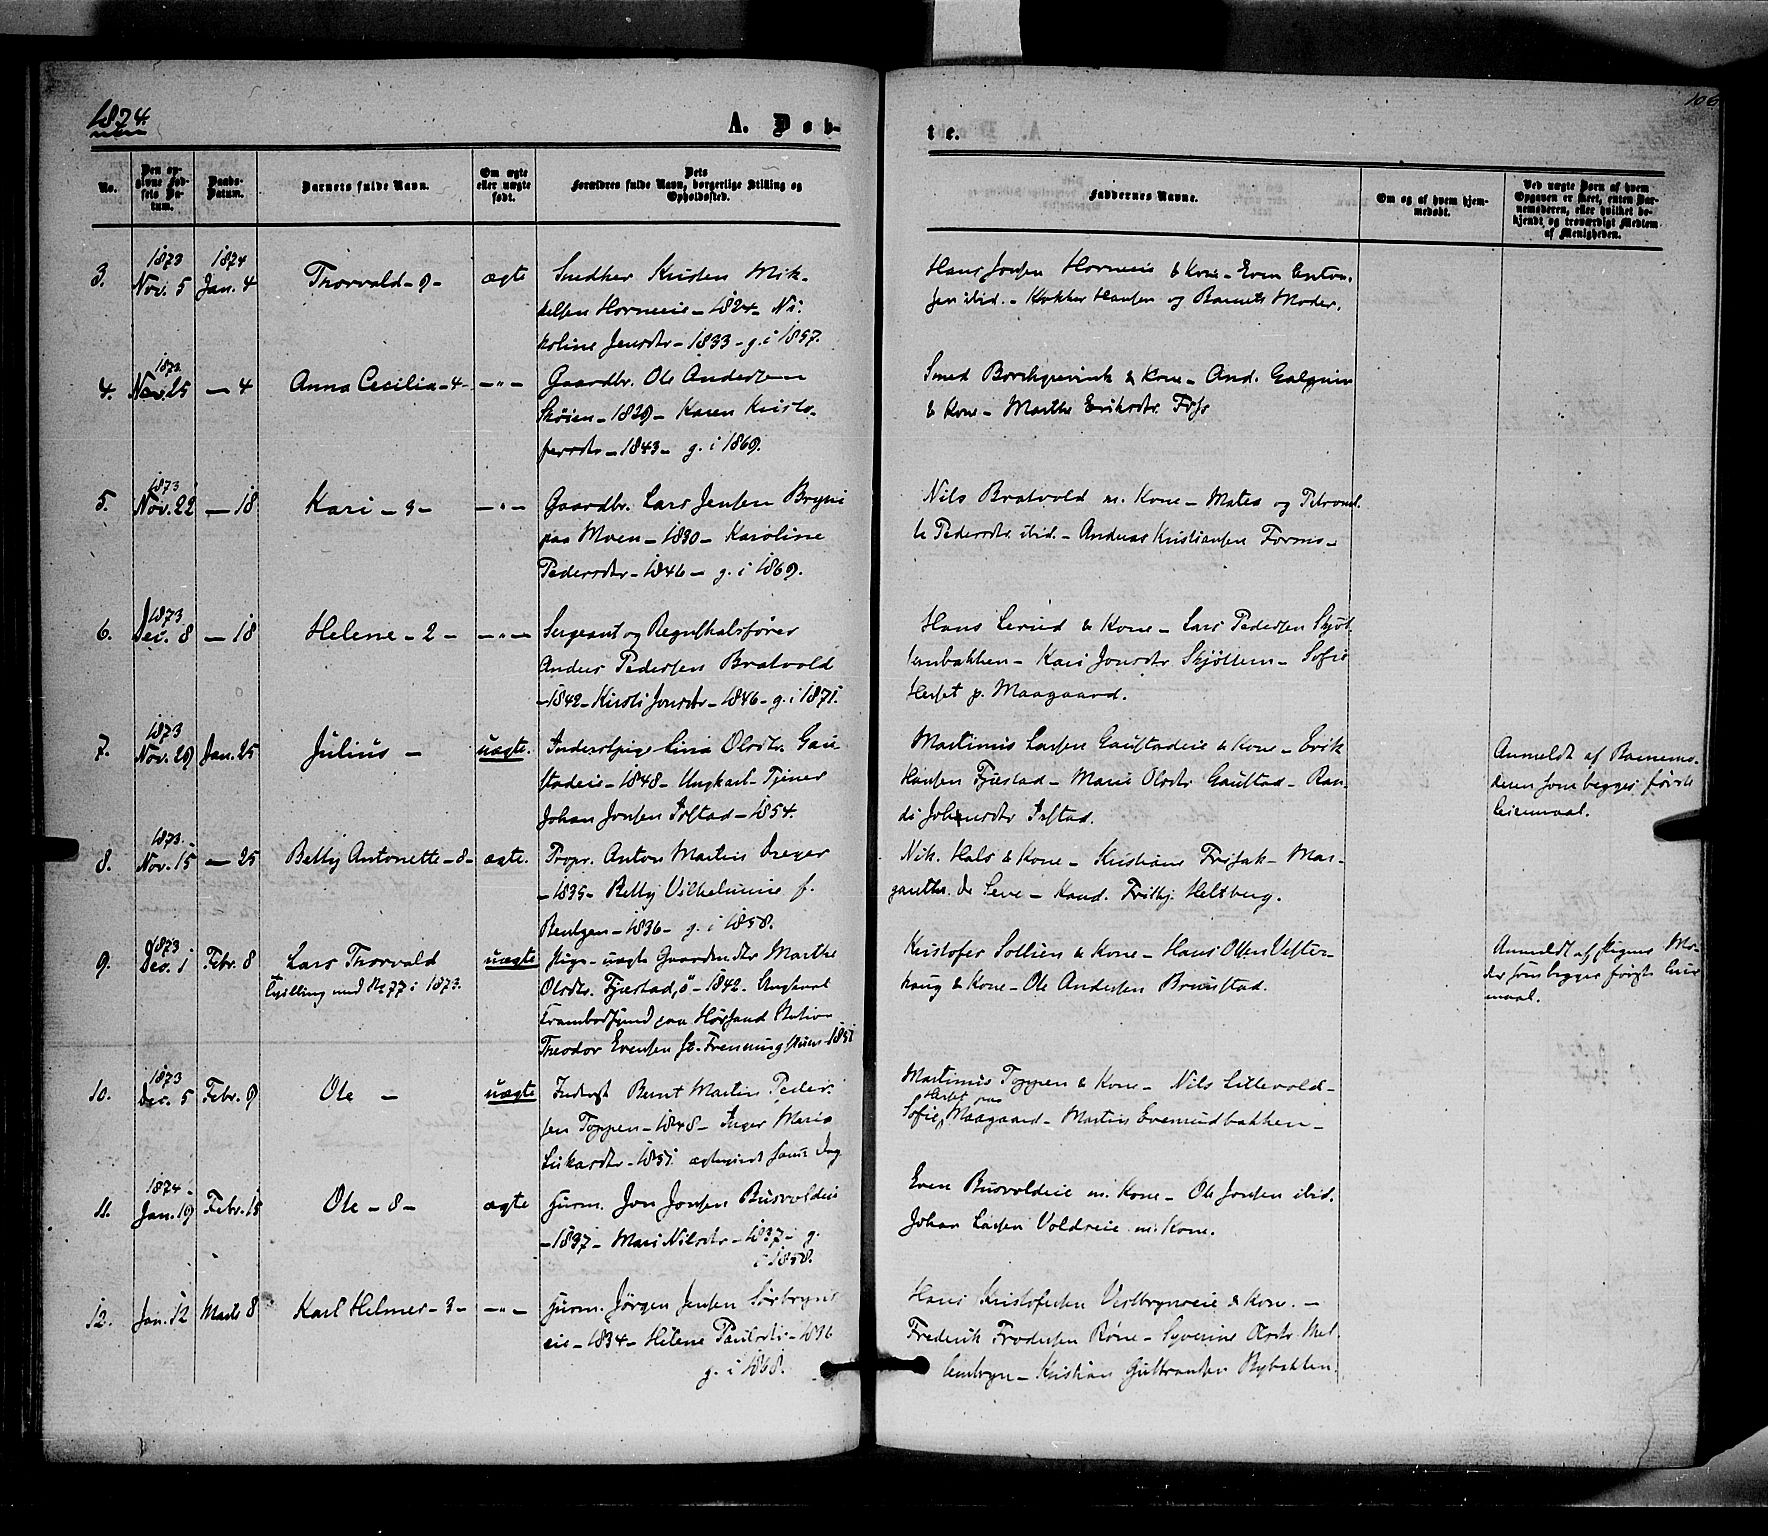 1874.
A. Døb-
te.
106
No.
Den op-
givne Fød-
sels Da-
tum.
Daabs-
Datum.
Barnets fulde Navn.
Om ægte
eller uægte
født.
Dets
Forældres fulde Navn, borgerlige Stilling og
Opholdssted.
Faddernes Navne.
Om og af hvem hjem-
medøbt.
Ved uægte Børn af hvem
Opgaven er skeet, enten Bar-
nemoderen, eller hvilket be-
kjendt og troværdigt Medlem
af Menigheden.
3.
1873
Nov. 5
1874
Jan. 4
Thorvald - 9 -
ægte
Snedker Kristen Mik-
kelsen Horneie - 1824 - Ni-
koline Jensdtr - 1833 - g. i 1857.
Hans Jonsen Horneie & Kone - Even Anton-
sen ibid. - Hansen og Barnets Moder.
4.
1873
Nov. 25
- 4
Anna Cecilia - 4 -
- " -
Gaardbr. Ole Andersen
Skøien - 1829 - Karen Kristo-
fersdtr - 1843 - g. i 1869.
Smed Borchgrevink & Kone - And.
& Kone - Marthe Eriksdtr. Foss
5.
1873
Nov. 22
- 18
Kari - 3 -
- " -
Gaardbr. Lars Jensen Bryni
paa Moen - 1830 - Karoline
Pedersdtr - 1846 - g. i 1869.
Nils Bratvold m. Kone - Mates og Petronel-
le Pedersdtr ibid. - Andreas Kristiansen Formo -
6.
1873
Dec. 8
- 18
Helene - 2 -
- " -
Sergeant og Regnskabsfører
Anders Pedersen Bratvold
- 1842 - Kirsti Jonsdtr - 1846 - g. i 1871.
Hans Lerud & Kone - Lars Pedersen Skjøt-
lienbakken - Kari Jonsdtr Skjøtlien - Sofie
Herset p. Maagaard.
7.
1873
Nov. 29
Jan. 25
Julius -
uægte.
Inderstpige Lina Olsdtr. Gau-
stadeie - 1848 - Ungkarl - Tjener
Johan Jonsen Tofstad - 1854.
Martinus Larsen Gaustadeie & Kone - Erik
Hansen Fjæstad - Marie Olsdtr Gaustad - Ran-
di Johnsdtr Tofstad.
Anmeldt af Barnemo-
deren som begges første
Leiermaal.
8.
1873.
Nov. 15
- 25
Betty Antonette - 8 -
ægte.
Propr. Anton Martin Dreyer
- 1835 - Betty Vilhelmine f.
Rentzen - 1836 - g. i 1858.
Nik. Hals & Kone - Kristiane Frisak - Mar-
garethe de Seve - Kand. Frithj. Heltberg.
9.
1873
Dec. 1
Febr. 8
Lars Thorvald
Tvilling med No 77 i 1873.
uægte
Pige - uægte Gaardmdtr Marthe
Olsdtr. Fjæstad, ø - 1842. Ungkarl
Krambodsvend paa Hørsand Station
Theodor Evensen fr. Frenning - 1851
Kristofer Sollien & Kone - Hans Olsen Vester-
haug & Kone - Ole Andersen Brenstad.
Anmeldt af Pigens Mo-
der som begges første Leier-
maal.
10.
1873
Dec. 5
Febr. 9
Ole -
uægte
Inderst Bernt Martin Peder-
sen Toppen - 1848 - Inger Maria
Lukasdtr - 1851. ægteviet samme Dag
Martinus Toppen & Kone - Nils Lillevold -
Herset paa
Sofie, Maagaard - Martin Evensrudbakken -
11.
1874 -
Jan. 19
Febr. 15
Ole - 8 -
ægte
Husm. Jon Jonsen Busvoldeie
- 1837 - Mari Nilsdtr - 1837 - g.
i 1858.
Even Busvoldeie m. Kone - Ole Jonsen ibid.
Johan Larsen Voldeie m. Kone.
12.
Jan. 12
Marts 8
Karl Helmer - 3 -
- " -
Husm. Jørgen Jensen Sørbryns-
eie - 1834 - Helene Paulsdtr - 1836
g. i 1868.
Hans Kristofersen Vestbryneie & Kone. -
Frederik Frederiksen Røne - Syverine Olsdtr. Mel-
lembryn - Kristian Gulbransen Rybakken.